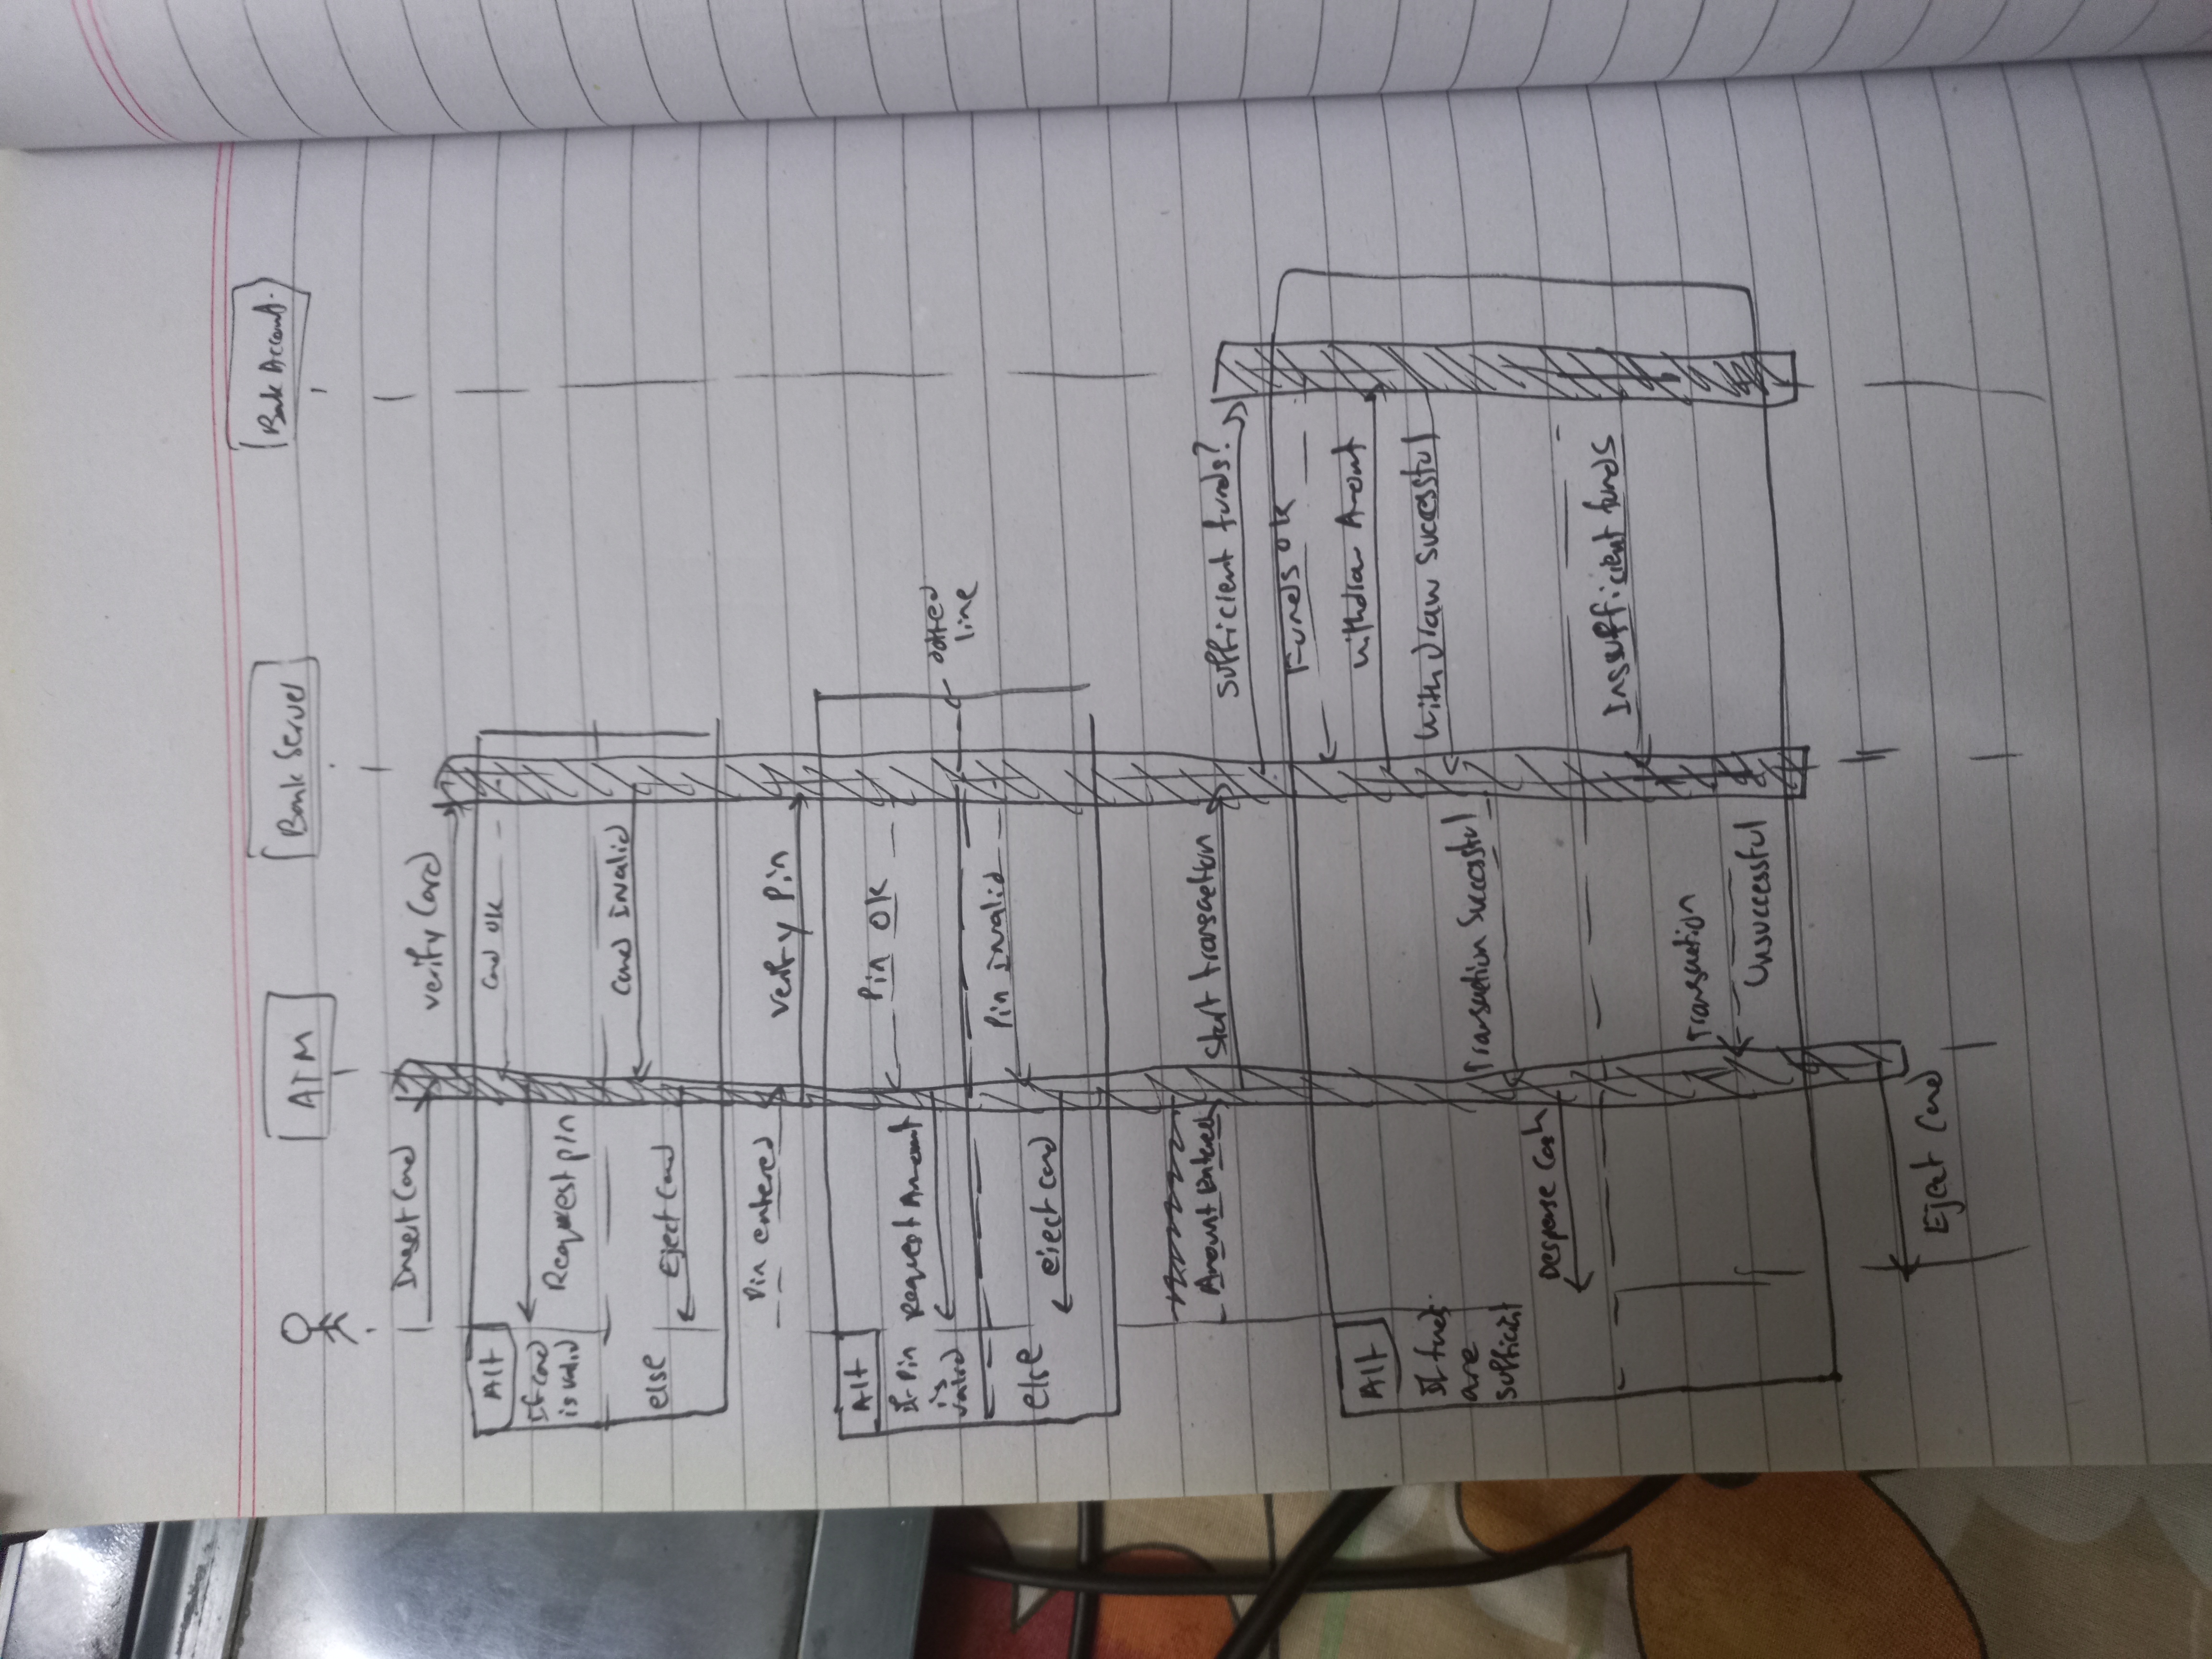 ATM
Bank Server
Bank Account.
Insert Card
verify Card
Alt
Card OK
If card
is valid
Request pin
Card Invalid
else
Eject Card
Pin entered
verify Pin
Alt
Pin OK
If Pin
is
valid
Request Amount
dotted
line
Pin Invalid
else
eject card
Amount Entered
Start transaction
Sufficient funds?
Funds ok
Alt
withdraw Amount
If funds
are
sufficient
withdraw successful
Transaction Successful
Despense Cash
Inssufficient funds
Transaction
Unsuccessful
Eject Card